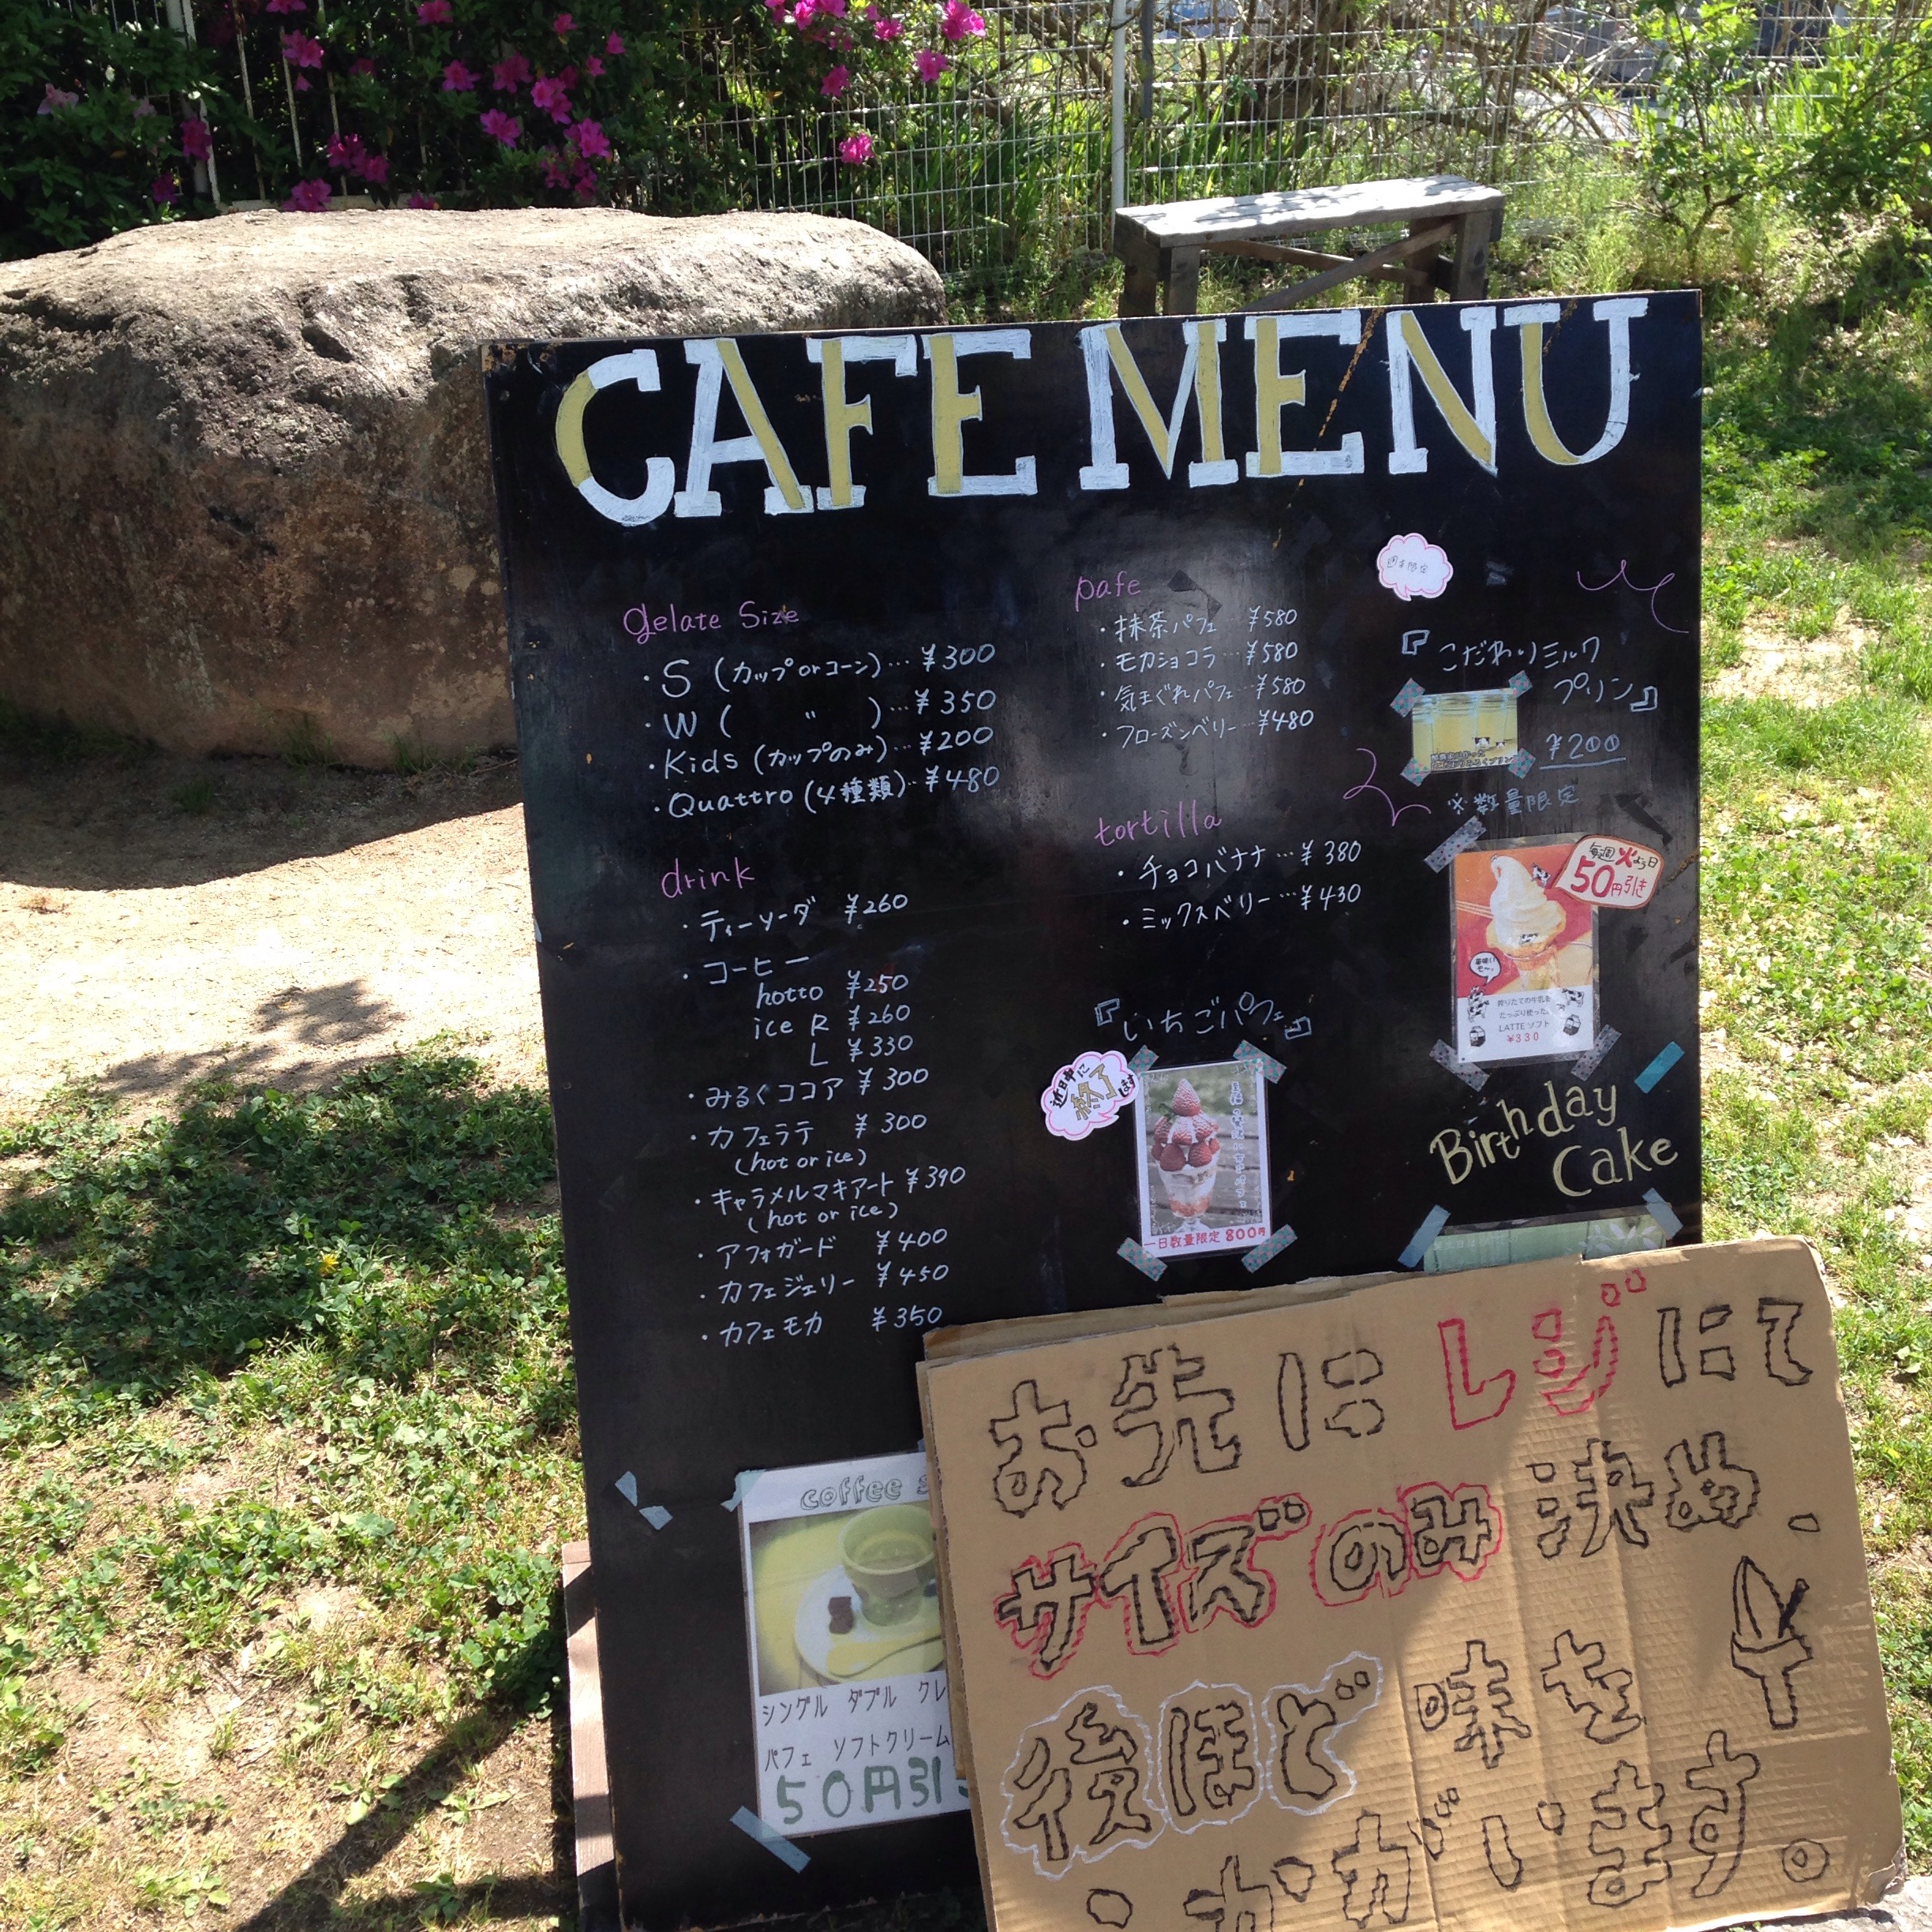 CAFE MENU
gelate Size
・S (カップorコーン)…¥300
・W ( 〃 )…¥350
・Kids (カップのみ)…¥200
・Quattro (4種類)…¥480
drink
・ティーソーダ ¥260
・コーヒー
hotto ¥250
ice R ¥260
L ¥330
・みるくココア ¥300
・カフェラテ ¥300
(hot or ice)
・キャラメルマキアート ¥390
(hot or ice)
・アフォガード ¥400
・カフェジェリー ¥450
・カフェモカ ¥350
pafe
・抹茶パフェ…¥580
・モカショコラ…¥580
・気まぐれパフェ…¥580
・フローズンベリー…¥480
tortilla
・チョコバナナ…¥380
・ミックスベリー…¥430
『いちごパフェ』
近日中に
終了します
一日数量限定 800円
週末限定
『こだわりミルク
プリン』
¥200
※数量限定
毎週火よう日
50円引き
美味い
モ〜。
搾りたての牛乳を
たっぷり使った。
LATTE ソフト
¥330
Birthday
Cake
coffee
シングル ダブル クレ
パフェ ソフトクリーム
50円引
お先にレジにて
サイズのみ決め、
後ほど味を
かがいます。